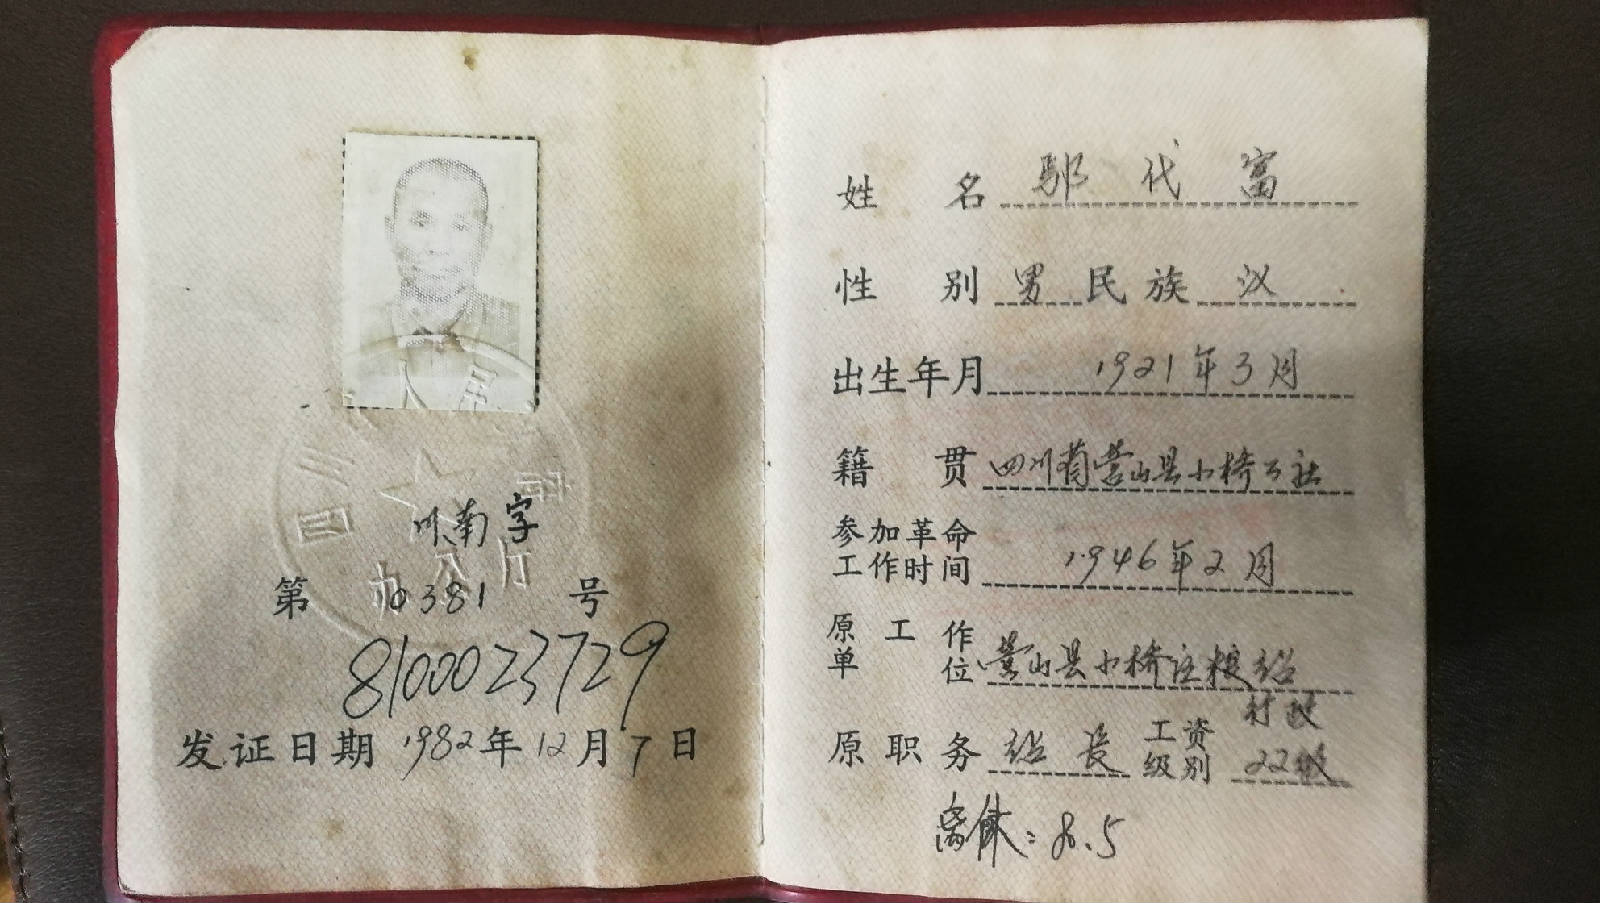 四川省人民
一九八 厅
川南字
第 0381 号
8100023729
发证日期 1982年12月7日
姓名 鄢代富
性别 男 民族 汉
出生年月 1921年3月
籍贯 四川省营山县小桥公社
参加革命工作时间 1946年2月
原工作单位 营山县小桥
原职务 组长 工资级别 行政22级
离休：8.5